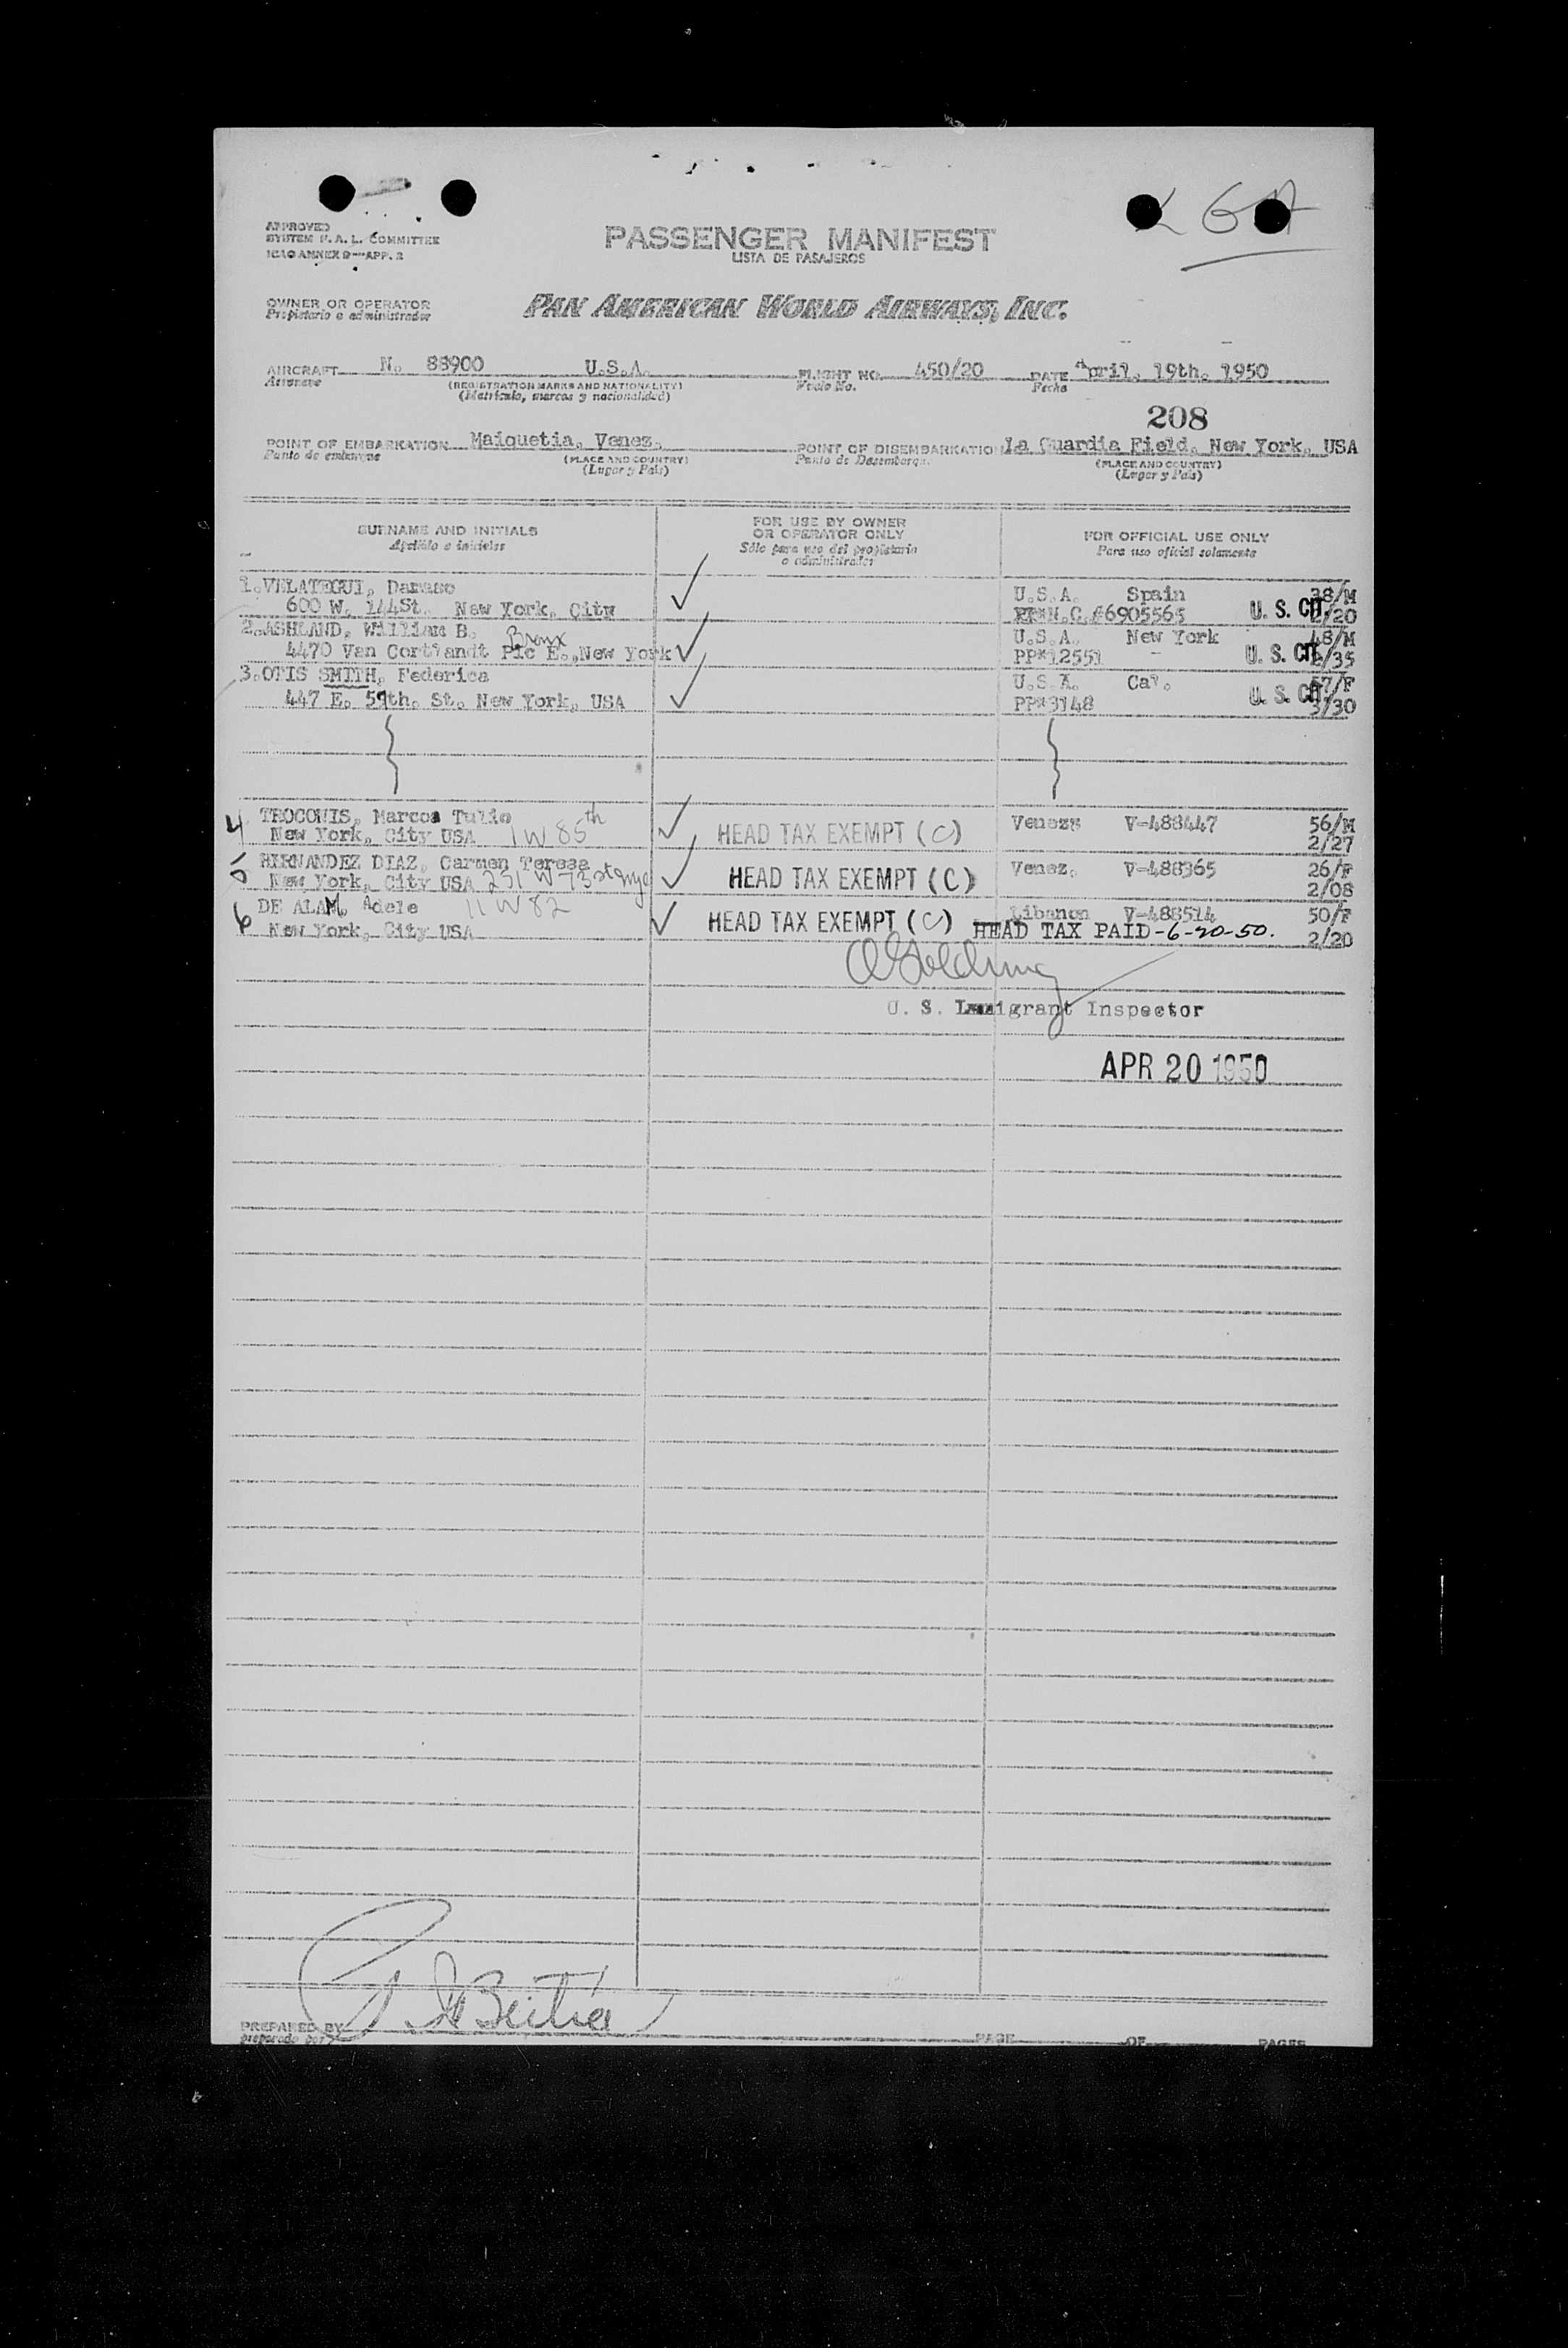 L G A
APPROVED
SYSTEM F. A. L. COMMITTEE
ICAO ANNEX 9—APP. 2
PASSENGER MANIFEST
LISTA DE PASAJEROS
OWNER OR OPERATOR
Propietario o administrador
PAN AMERICAN WORLD AIRWAYS, INC.
AIRCRAFT N. 88900 U.S.A. FLIGHT NO. 450/20 DATE April. 19th. 1950
Aeronave (REGISTRATION MARKS AND NATIONALITY) Vuelo No. Fecha
(Matrícula, marcas y nacionalidad)
208
POINT OF EMBARKATION Maiquetia, Venez. POINT OF DISEMBARKATION La Guardia Field, New York, USA
Punto de embarque (PLACE AND COUNTRY) Punto de Desembarque (PLACE AND COUNTRY)
(Lugar y País) (Lugar y País)
SURNAME AND INITIALS FOR USE BY OWNER OR OPERATOR ONLY FOR OFFICIAL USE ONLY
Apellido e iniciales Sólo para uso del propietario o administrador Para uso oficial solamente
1.VELATEGUI, Damaso U.S.A. Spain 38/M
600 W. 144St. New York, City N.C.#6905565 U. S. CIT. 2/20
2.ASHLAND, William B. U.S.A. New York 48/M
4470 Van Cortlandt Pk E., Bronx New York PP#12551 U. S. CIT. /35
3.OTIS SMITH, Federica U.S.A. Cal. 57/F
447 E. 57th. St. New York, USA PP#3148 U. S. CIT. 3/30
4 TROCONIS, Marcos Tulio Venez. V-488447 56/M
New York, City USA 1 W 85th HEAD TAX EXEMPT (C) 2/27
5 HERNANDEZ DIAZ, Carmen Teresa Venez. V-488365 26/F
New York, City USA 231 W 73 st nyc HEAD TAX EXEMPT (C) 2/08
6 DE ALAM, Adele 11 W 82 Libanon V-488514 50/F
New York, City USA HEAD TAX EXEMPT (C) HEAD TAX PAID-6-20-50. 2/20
U. S. Immigrant Inspector
APR 20 1950
PREPARED BY PAGE OF PAGES
preparado por